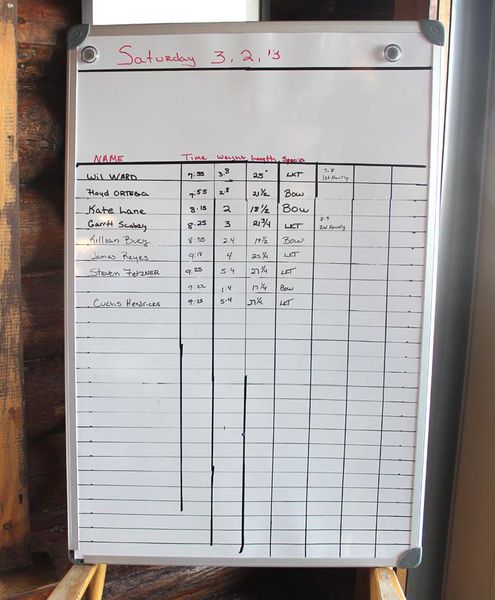 Saturday 3.2.'13
NAME Time Weight Length Species
Wil WARD 7:35 3.8 25" LKT 7-8 1st Hourly
Floyd ORTEGA 7:55 2.8 21 1/2 Bow
Kate Lane 8:15 2 18 1/2 Bow
Garritt 8:25 3 21 3/4 LKT 8-9 2nd Hourly
Killian Bucy 8:55 2.4 19 1/2 Bow
James Reyes 9:18 4 LKT
Steven Fetzner 9:25 5.4 27 1/4 LKT
9:22 1.4 17 1/4 Bow
Curtis Hendricks 9:25 5.4 27 1/4 LKT